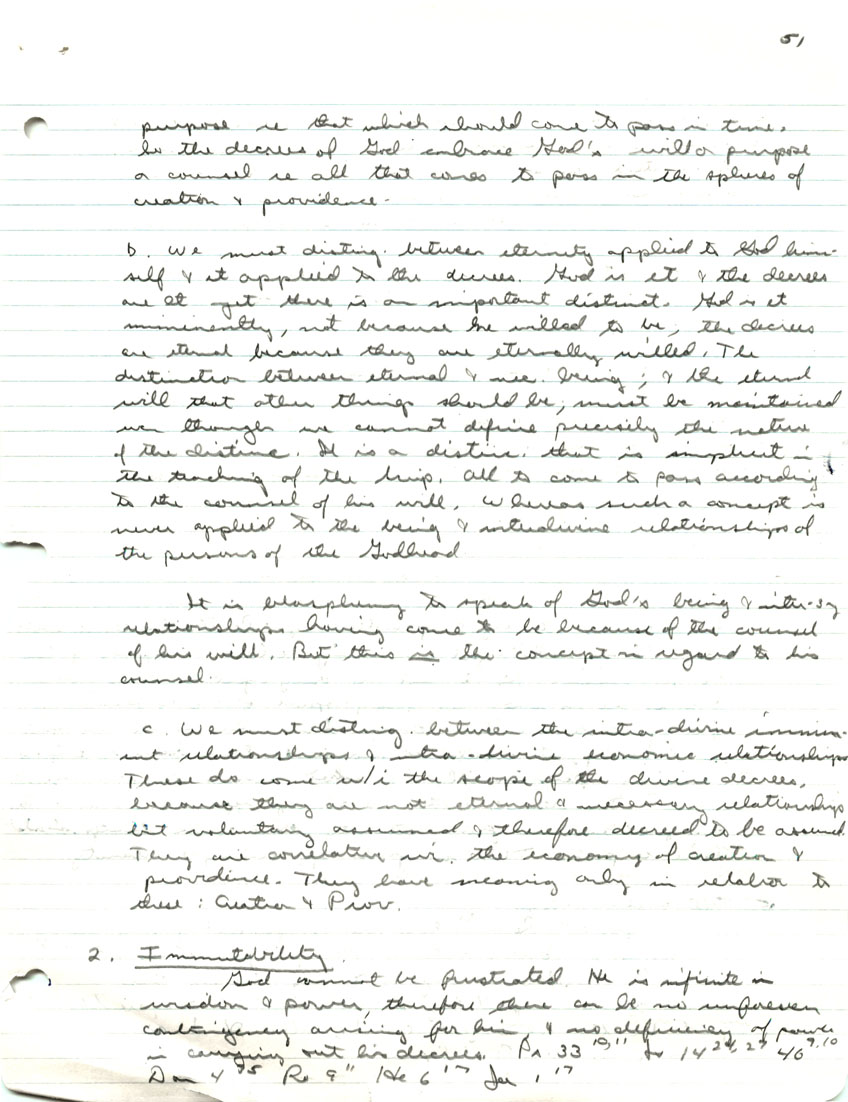 51
purpose re that which should come to pass in time.
So the decrees of God embrace God's will or purpose
or counsel re all that comes to pass in the spheres of
creation & providence.
b. We must disting. between eternity applied to God him-
self & it applied to the decrees. God is et & the decrees
are et yet there is an important distinct. God is et
imminently, not because he willed to be, the decrees
are eternal because they are eternally willed. The
distinction between eternal & nec. being; & the eternal
will that other things should be, must be maintained
even though we cannot define precisely the nature
of the distinc. It is a distinc. that is implicit in
the teaching of the Scrip. All to come to pass according
to the counsel of his will. Whereas such a concept is
never applied to the being & intradivine relationships of
the persons of the Godhead
It is blasphemy to speak of God's being &
relationships having come to be because of the counsel
of his will. But this is the concept in regard to his
counsel.
c. We must disting. between the intra-divine immin-
ent relationships & intra-divine economic relationships
These do come w/i the scope of the divine decrees,
because they are not eternal & necessary relationships
but voluntary assumed & therefore decreed to be assumed.
They are correlative w. the economy of creation &
providence. They have meaning only in relation to
these: Creation & Prov.
2. Immutability
God cannot be frustrated. He is infinite in
wisdom & power, therefore there can be no unforeseen
contingency arising for him, & no deficiency of power
in carrying out his decrees. Ps 33 10,11 Is 14 24,27 46 9,10
Dan 4 35 Ro 9 11 He 6 17 Ja 1 17